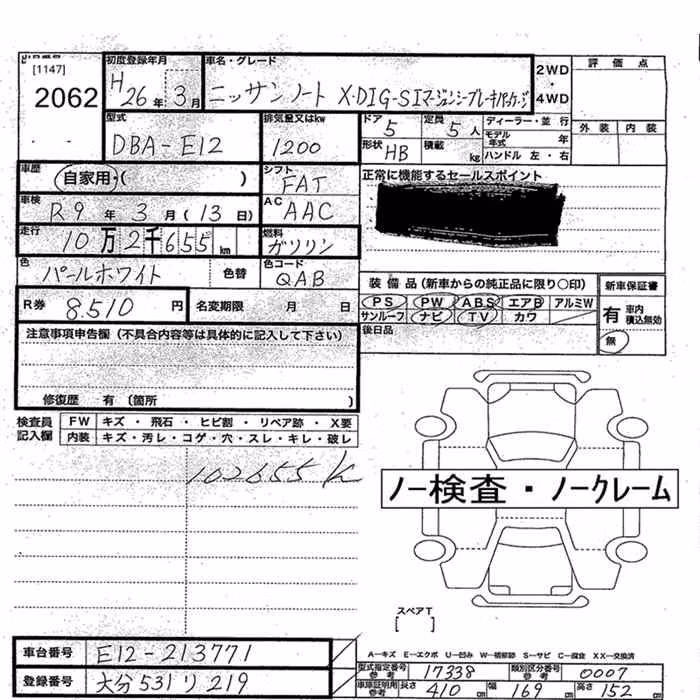 [1147]
2062
初度登録年月
H26年 3月
車名・グレード
ニッサンノート X・DIG-S エマージェンシーブレーキパッケージ
2WD
・
4WD
評価点
外装 内装
型式
DBA-E12
排気量又はkw
1200
ドア 5
定員 5人
ディーラー・並行
モデル年式 年
形状 HB
積載 kg
ハンドル 左・右
車歴
自家用・( )
シフト
FAT
正常に機能するセールスポイント
車検
R9年 3月 (13日)
AC
AAC
走行
10万2千655km
燃料
ガソリン
色
パールホワイト
色替
色コード
QAB
装備品(新車からの純正品に限り○印)
新車保証書
PS PW ABS エアB アルミW
サンルーフ ナビ TV カワ
有 車内積込無効
無
後日品
R券 8,510円
名変期限 月 日
注意事項申告欄(不具合内容等は具体的に記入して下さい)
修復歴 有(箇所 )
検査員記入欄
FW キズ・飛石・ヒビ割・リペア跡・X要
内装 キズ・汚レ・コゲ・穴・スレ・キレ・破レ
102655K
ノー検査・ノークレーム
スペアT
[ ]
A―キズ E―エクボ U―凹み W―補修跡 S―サビ C―腐食 XX―交換済
車台番号 E12-213771
登録番号 大分531り219
型式指定番号参考 17338
類別区分番号参考 0007
車庫証明用参考 長さ 410cm 幅 169cm 高さ 152cm